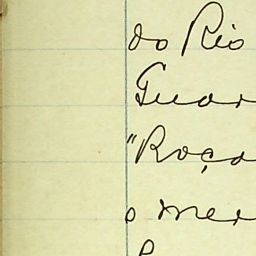 do Rio
Guar
"Roça
o mer